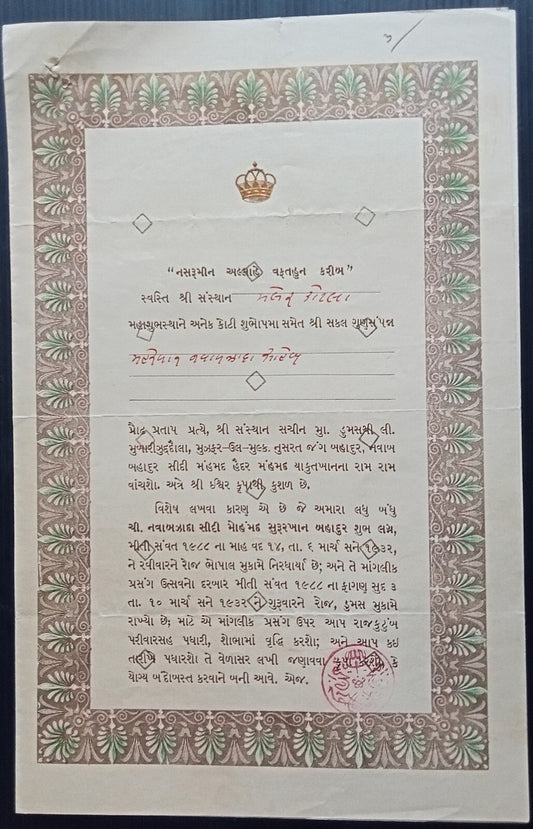 ૩/
"નસરૂમીન અલ્લાહે વફતાહુન કરીબ"
સ્વસ્તિ શ્રી સંસ્થાન મલેર કોટલા
મહાશુભસ્થાને અનેક કોટી શુભોપમા સમેત શ્રી સકલ ગુણસંપન્ન
મહેરબાન નવાબઝાદા સાહેબ
પ્રૌઢ પ્રતાપ પ્રત્યે, શ્રી સંસ્થાન સચીન મુા. ડુમસથી લી.
મુબારીઝુદદૌલા, મુઝફર-ઉલ-મુલ્ક. નુસરત જંગ બહાદુર, નવાબ
બહાદુર સીદી મોહંમદ હૈદર મોહંમદ યાકુતખાનના રામ રામ
વાંચશો. અત્રે શ્રી ઈશ્વર કૃપાથી કુશળ છે.
વિશેષ લખવા કારણ એ છે જે અમારા લધુ બંધુ
ચી. નવાબઝાદા સીદી મોહંમદ સુરૂરખાન બહાદુર શુભ લગ્ન,
મીતી સંવત ૧૯૮૮ ના માહ વદ ૧૪, તા. ૬ માર્ચ સને ૧૯૩૨,
ને રવીવારને રોજ ભોપાલ મુકામે નિરધાર્યા છે; અને તે માંગલીક
પ્રસંગ ઉત્સવનો દરબાર મીતી સંવત ૧૯૮૮ ના ફાગણ સુદ ૩
તા. ૧૦ માર્ચ સને ૧૯૩૨ ને ગુરૂવારને રોજ, ડુમસ મુકામે
રાખ્યો છે; માટે એ માંગલીક પ્રસંગ ઉપર આપ રાજકુટુંબ
પરીવારસહ પધારી, શોભામાં વૃદ્ધિ કરશો; અને આપ કઇ
તારીખે પધારશો તે વેળાસર લખી જણાવવા કૃપા કરશો કે
યોગ્ય બંદોબસ્ત કરવાને બની આવે. એજ.